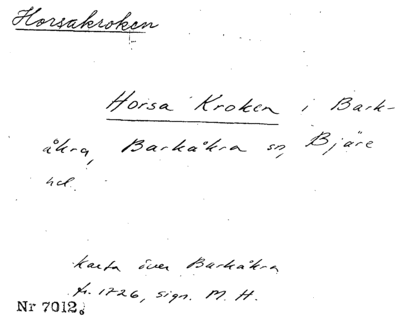 Horsakroken
Horsa Kroken i Bark-
åkra, Barkåkra sn, Bjäre
hd.
Karta över Barkåkra
fr. 1726, sign. M. H.
Nr 7012.